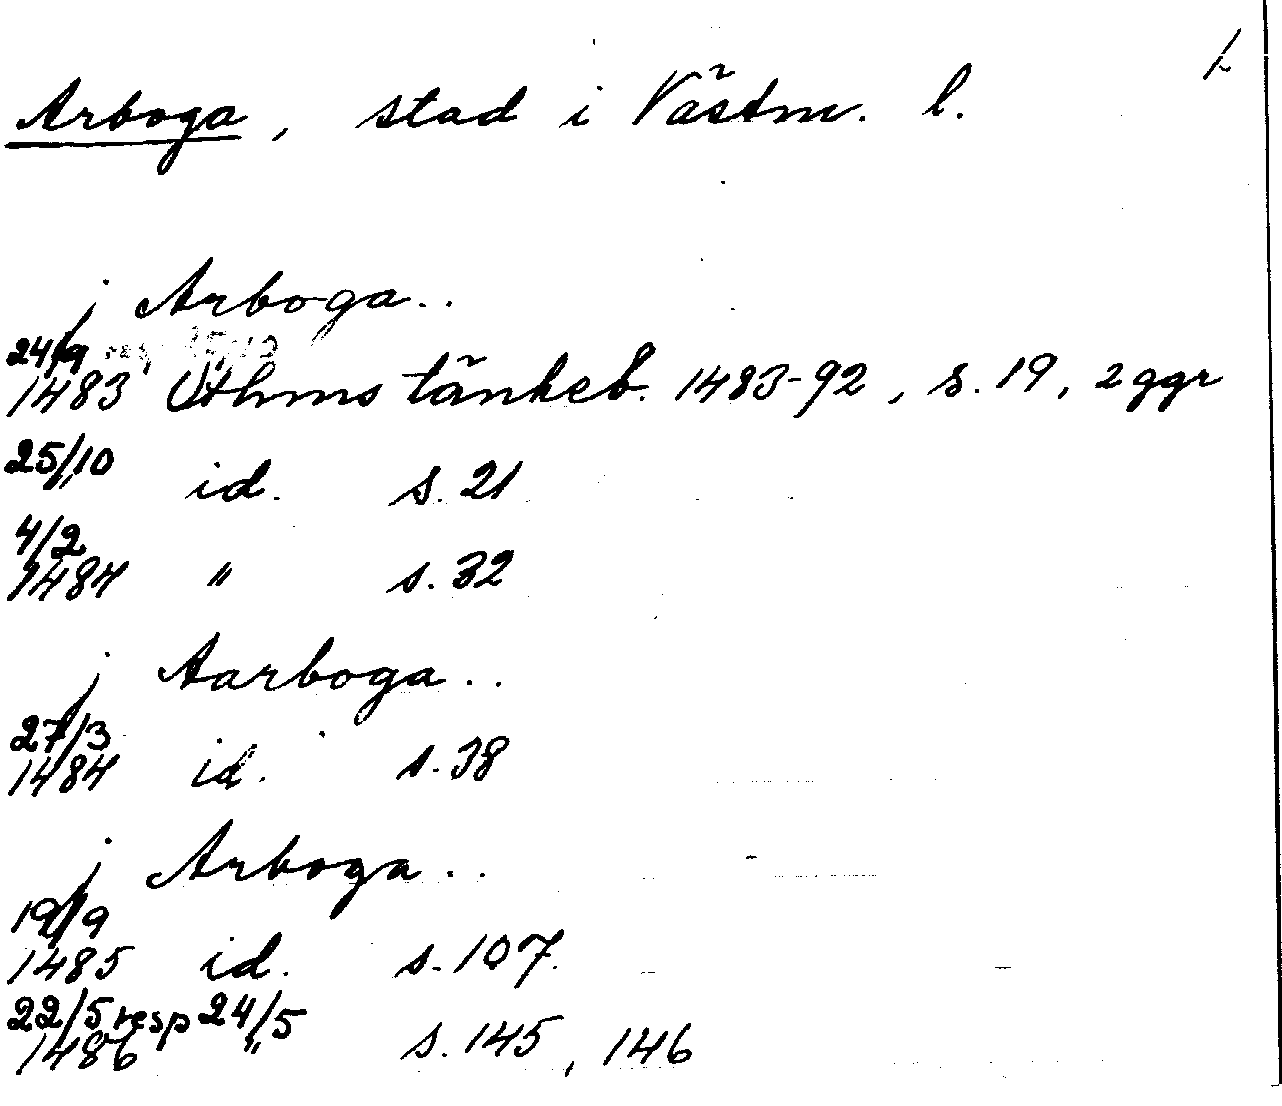 L
Arboga, stad i Västm. l.
j Arboga..
24/9
1483 Sthms tänkeb. 1483-92, s. 19, 2 ggr
25/10 id. s. 21
4/2
1484 " s. 32
j Aarboga..
27/3
1484 id. s. 38
j Arboga..
19/9
1485 id. s. 107.
22/5 resp 24/5
1486 " s. 145, 146